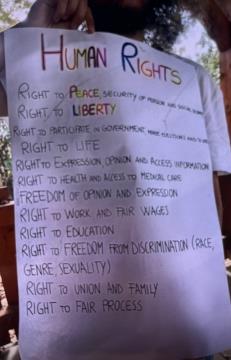 HUMAN RIGHTS
RIGHT TO PEACE, SECURITY OF PERSON AND SOCIAL
RIGHT TO LIBERTY
RIGHT TO PARTICIPATE IN GOVERNMENT, MAKE ELECTIONS AND TO
RIGHT TO LIFE
RIGHT TO EXPRESSION OPINION AND ACCESS INFORMATION
RIGHT TO HEALTH AND ACCESS TO MEDICAL CARE
FREEDOM OF OPINION AND EXPRESSION
RIGHT TO WORK AND FAIR WAGES
RIGHT TO EDUCATION
RIGHT TO FREEDOM FROM DISCRIMINATION (RACE,
GENRE, SEXUALITY)
RIGHT TO UNION AND FAMILY
RIGHT TO FAIR PROCESS